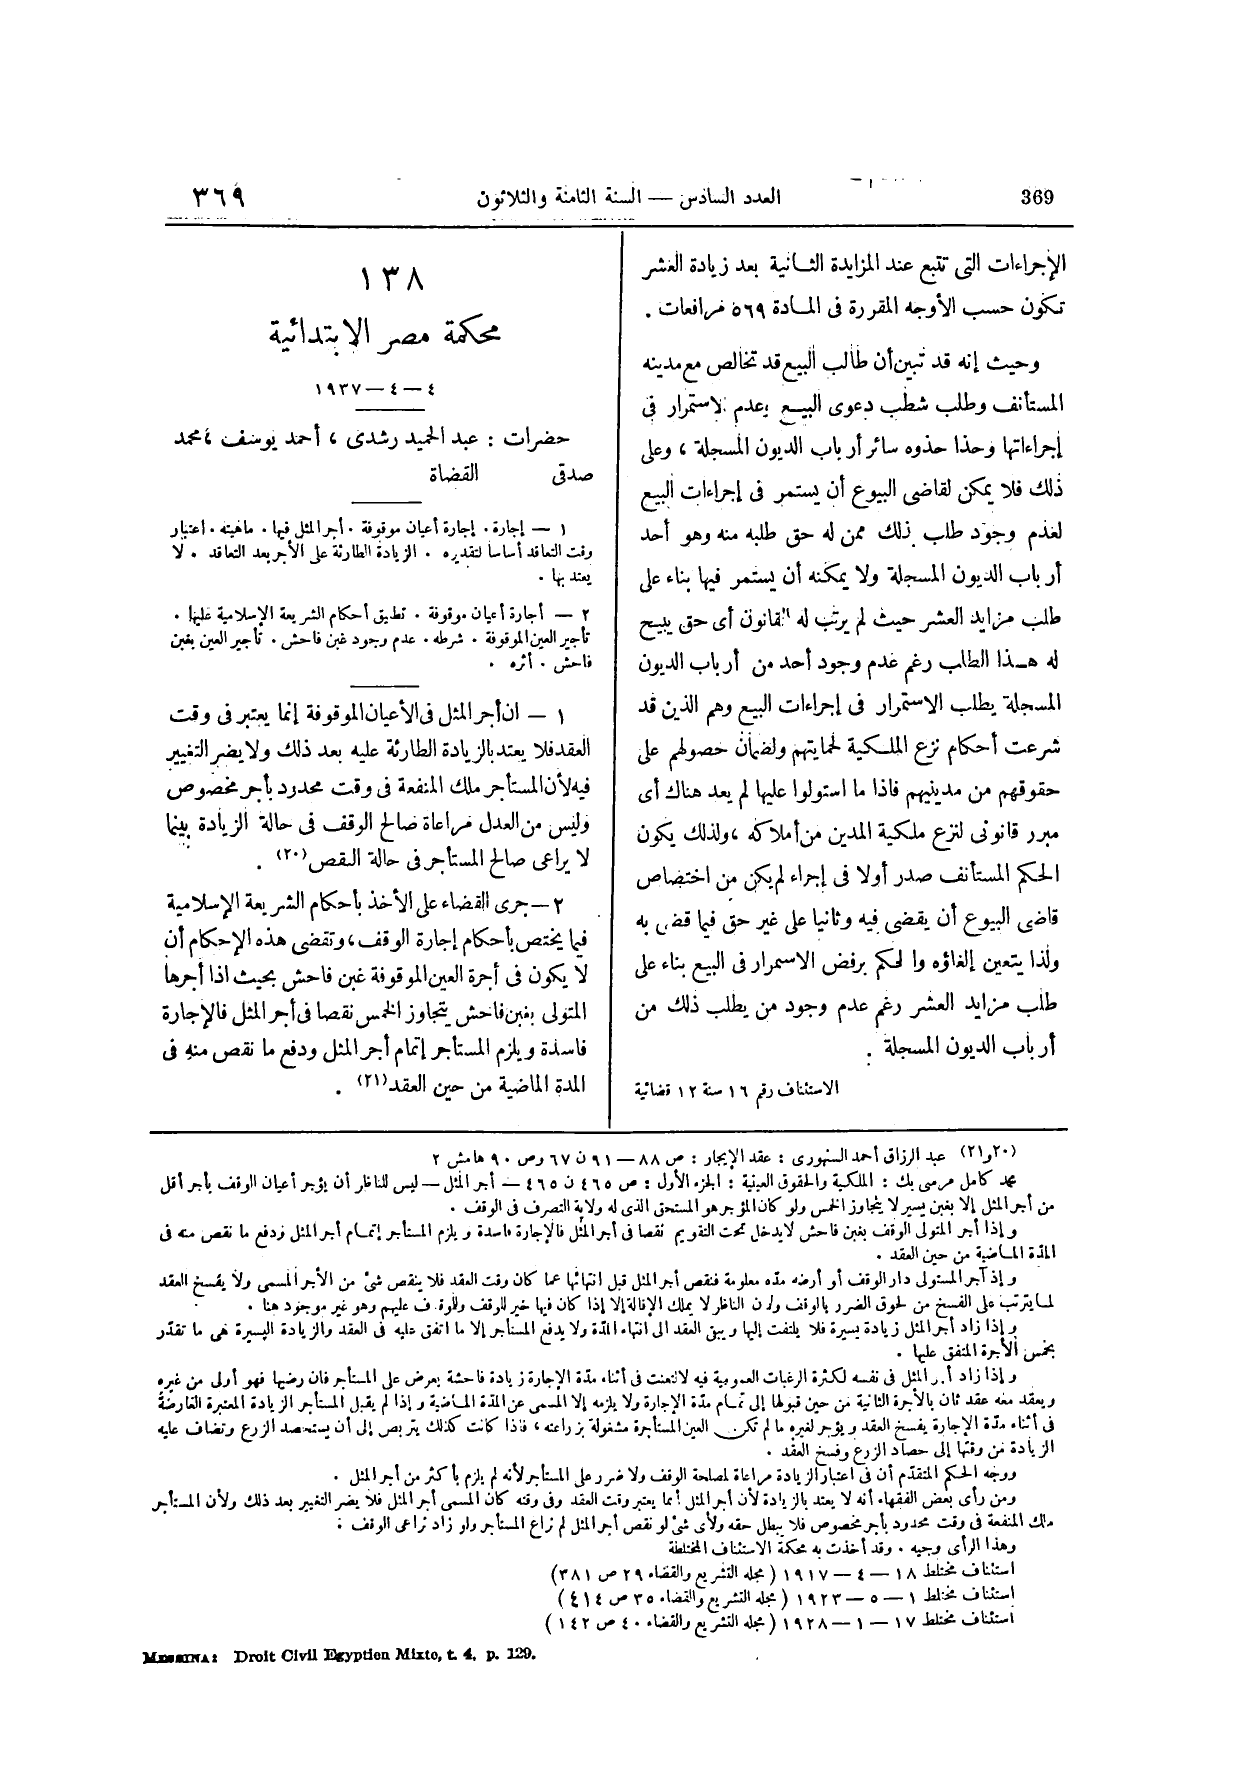 369
العدد السادس — السنة الثامنة والثلاثون
٣٦٩
الإجراءات التى تتبع عند المزايدة الثانية بعد زيادة العشر
تكون حسب الأوجه المقررة فى المادة ٥٦٩ مرافعات .
وحيث إنه قد تبين أن طالب البيع قد تخالص مع مدينه
المستأنف وطلب شطب دعوى البيع وعدم الاستمرار فى
إجراءاتها وحذا حذوه سائر أرباب الديون المسجلة ، وعلى
ذلك فلا يمكن لقاضى البيوع أن يستمر فى إجراءات البيع
لعدم وجود طلب ذلك ممن له حق طلبه منه وهو أحد
أرباب الديون المسجلة ولا يمكنه أن يستمر فيها بناء على
طلب مزايد العشر حيث لم يرتب له القانون أى حق يبيح
له هذا الطلب رغم عدم وجود أحد من أرباب الديون
المسجلة يطلب الاستمرار فى إجراءات البيع وهم الذين قد
شرعت أحكام نزع الملكية لحمايتهم ولضمان حصولهم على
حقوقهم من مدينيهم فاذا ما استولوا عليها لم يعد هناك أى
مبرر قانونى لنزع ملكية المدين من أملاكه ، ولذلك يكون
الحكم المستأنف صدر أولا فى إجراء لم يكن من اختصاص
قاضى البيوع أن يقضى فيه وثانيا على غير حق فيما قضى به
ولذا يتعين إلغاؤه والحكم برفض الاستمرار فى البيع بناء على
طلب مزايد العشر رغم عدم وجود من يطلب ذلك من
أرباب الديون المسجلة .
الاستئناف رقم ١٦ سنة ١٢ قضائية
١٣٨
محكمة مصر الابتدائية
٤ — ٤ — ١٩٣٧
حضرات : عبد الحميد رشدى ، أحمد يوسف ، محمد
صدقى القضاة
١ — إجارة . إجارة أعيان موقوفة . أجر المثل فيها . ماهيته . اعتبار
وقت التعاقد أساسا لتقديره . الزيادة الطارئة على الأجر بعد التعاقد . لا
يعتد بها .
٢ — أجارة أعيان موقوفة . تطبيق أحكام الشريعة الإسلامية عليها .
تأجير العين الموقوفة . شرطه . عدم وجود غبن فاحش . تأجير العين بغبن
فاحش . أثره .
١ — ان أجر المثل فى الأعيان الموقوفة إنما يعتبر فى وقت
العقد فلا يعتد بالزيادة الطارئة عليه بعد ذلك ولا يضر التغيير
فيه لأن المستأجر ملك المنفعة فى وقت محدود بأجر مخصوص
وليس من العدل مراعاة صالح الوقف فى حالة الزيادة بينما
لا يراعى صالح المستأجر فى حالة النقص (٢٠) .
٢ — جرى القضاء على الأخذ بأحكام الشريعة الإسلامية
فيما يختص بأحكام إجارة الوقف ، وتقضى هذه الاحكام أن
لا يكون فى أجرة العين الموقوفة غبن فاحش بحيث اذا أجرها
المتولى بغبن فاحش يتجاوز الخمس نقصا فى أجر المثل فالإجارة
فاسدة ويلزم المستأجر إتمام أجر المثل ودفع ما نقص منه فى
المدة الماضية من حين العقد (٢١) .
(٢٠ و٢١) عبد الرزاق أحمد السنهورى : عقد الإيجار : ص ٨٨ — ٩١ ن ٦٧ وص ٩٠ هامش ٢
محمد كامل مرسى بك : الملكية والحقوق العينية : الجزء الأول : ص ٤٦٥ ن ٤٦٥ — أجر المثل — ليس للناظر أن يؤجر أعيان الوقف بأجر أقل
من أجر المثل إلا بغبن يسير لا يتجاوز الخمس ولو كان المؤجر هو المستحق الذى له ولاية التصرف فى الوقف .
وإذا أجر المتولى الوقف بغبن فاحش لا يدخل تحت التقويم نقصا فى أجر المثل فالإجارة فاسدة ويلزم المستأجر إتمام أجر المثل ودفع ما نقص منه فى
المدة الماضية من حين العقد .
وإذ آجر المتولى دار الوقف أو أرضه مدة معلومة فنقص أجر المثل قبل انتهائها عما كان وقت العقد فلا ينقص شئ من الأجر المسمى ولا يفسخ العقد
لما يترتب على الفسخ من لحوق الضرر بالوقف ولأن الناظر لا يملك الإقالة إلا إذا كان فيها خير للوقف وللموقوف عليهم وهو غير موجود هنا .
وإذا زاد أجر المثل زيادة يسيرة فلا يلتفت إليها ويبقى العقد الى انتهاء المدة ولا يدفع المستأجر إلا ما اتفق عليه فى العقد والزيادة اليسيرة هى ما تقدر
بخمس الأجرة المتفق عليها .
وإذا زاد أجر المثل فى نفسه لكثرة الرغبات العمومية فيه لا لتعنت فى أثناء مدة الإجارة زيادة فاحشة يعرض على المستأجر فان رضيها فهو أولى من غيره
ويعقد معه عقد ثان بالأجرة الثانية من حين قبولها إلى تمام مدة الإجارة ولا يلزمه إلا المسمى عن المدة الماضية وإذا لم يقبل المستأجر الزيادة المعتبرة العارضة
فى أثناء مدة الإجارة يفسخ العقد ويؤجر لغيره ما لم تكن العين المستأجرة مشغولة بزراعته ، فاذا كانت كذلك يتربص إلى أن يستحصد الزرع وتضاف عليه
الزيادة من وقتها إلى حصاد الزرع وفسخ العقد .
ووجه الحكم المتقدم أن فى اعتبار الزيادة مراعاة لمصلحة الوقف ولا ضرر على المستأجر لأنه لم يلزم بأكثر من أجر المثل .
ومن رأى بعض الفقهاء أنه لا يعتد بالزيادة لأن أجر المثل أنما يعتبر وقت العقد وفى وقته كان المسمى أجر المثل فلا يضر التغيير بعد ذلك ولأن المستأجر
ملك المنفعة فى وقت محدود بأجر مخصوص فلا يبطل حقه ولأى شئ لو نقص أجر المثل لم تراع المستأجر ولو زاد تراعى الوقف .
وهذا الرأى وجيه . وقد أخذت به محكمة الاستئناف المختلطة
استئناف مختلط ١٨ — ٤ — ١٩١٧ (مجلة التشريع والقضاء ٢٩ ص ٣٨١)
استئناف مختلط ١ — ٥ — ١٩٢٣ (مجلة التشريع والقضاء ٣٥ ص ٤١٤)
استئناف مختلط ١٧ — ١ — ١٩٢٨ (مجلة التشريع والقضاء ٤٠ ص ١٤٢)
MESSINA: Droit Civil Egyptien Mixto, t. 4, p. 129.